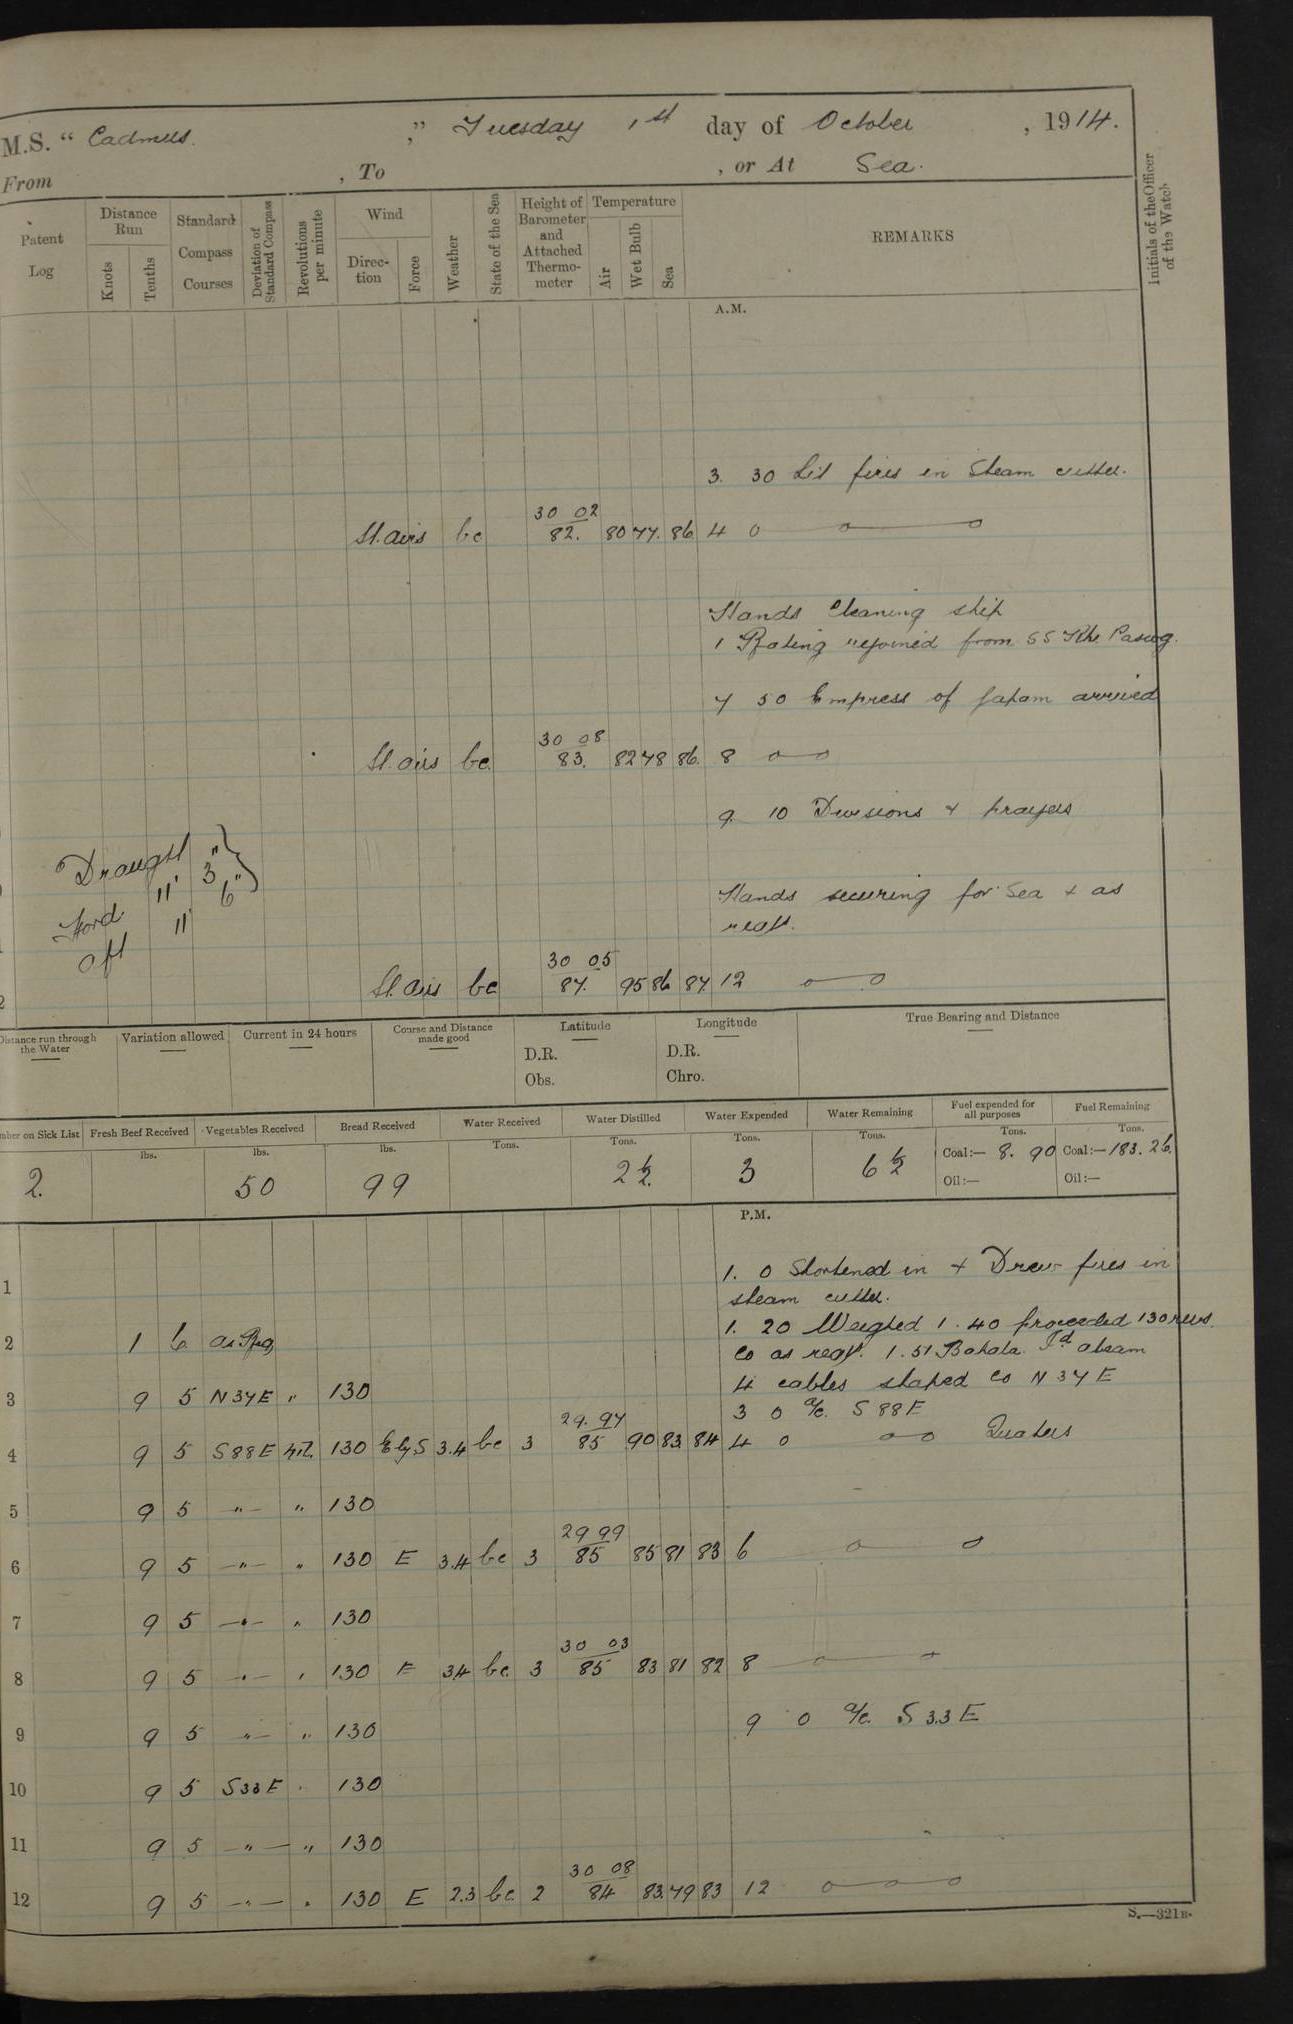 M.S. " Cadmus. ", Tuesday 1st day of October, 1914.
From , To , or At Sea.
Patent Log
Distance Run
Knots
Tenths
Standard Compass Courses
Deviation of Standard Compass
Revolutions per minute
Wind
Direction
Force
Weather
State of the Sea
Height of Barometer and Attached Thermometer
Temperature
Air
Wet Bulb
Sea
REMARKS
Initials of the Officer of the Watch
A.M.
3. 30 Lit fires in Steam cutter.
30 02
Lt. airs bc 82. 80 77. 86 4 0
Hands Cleaning ship
1 Rating rejoined from SS
7 50 Empress of Japan arrived
30 08
Lt. airs bc. 83. 82 78 86. 8
9. 10 Divisions & prayers
Draught
Ford. 11' 3"
Aft 11' 6"
Hands securing for Sea & as
reqd.
30 05
Lt. airs bc 87. 95 86 87. 12
Distance run through the Water
Variation allowed
Current in 24 hours
Course and Distance made good
Latitude
D.R.
Obs.
Longitude
D.R.
Chro.
True Bearing and Distance
mber on Sick List
Fresh Beef Received
Vegetables Received
Bread Received
Water Received
Water Distilled
Water Expended
Water Remaining
Fuel expended for all purposes
Fuel Remaining
lbs. lbs. lbs. Tons. Tons. Tons. Tons. Tons. Tons.
2. 50 99 2½ 3 6½ Coal:— 8. 90 Coal:—183. 26.
Oil:— Oil:—
P.M.
1 1. 0 Shortened in & Drew fires in
steam cutter.
1. 20 Weighed 1. 40 proceeded 130 revs.
2 1 6 as Req
Co as reqd. 1. 51 Id abeam
4 cables shaped Co N 37 E
3 9 5 N37E " 130
3 0 a/c. S 88 E
29. 97
4 9 5 S88E 130 E by S 3.4 bc 3 85 90 83 84 4 0 Quarters
5 9 5 —"— " 130
29 99
6 9 5 —"— " 130 E 3.4 bc 3 85 85 81 83 6
7 9 5 —"— " 130
30 03
8 9 5 —"— " 130 E 3.4 bc. 3 85 83 81 82 8
9 9 5 —"— " 130
9 0 a/c. S 33 E
10 9 5 S33E " 130
11 9 5 —"— " 130
30 08
12 9 5 —"— " 130 E 2.3 bc. 2 84 83. 79 83 12
S.—321B.